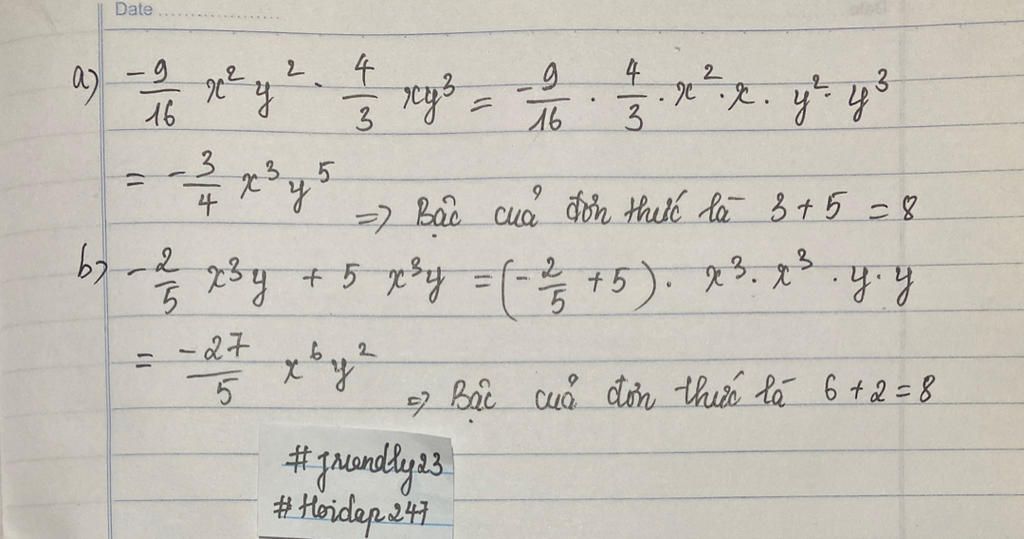 Date
a) -9/16 x² y² · 4/3 xy³ = -9/16 · 4/3 · x² · x · y² · y³
= -3/4 x³ y⁵ => Bậc của đơn thức là 3 + 5 = 8
b) -2/5 x³y + 5 x³y = (-2/5 + 5) · x³ · x³ · y · y
= -27/5 x⁶ y² => Bậc của đơn thức là 6 + 2 = 8
#friendly23
#Hoidap247